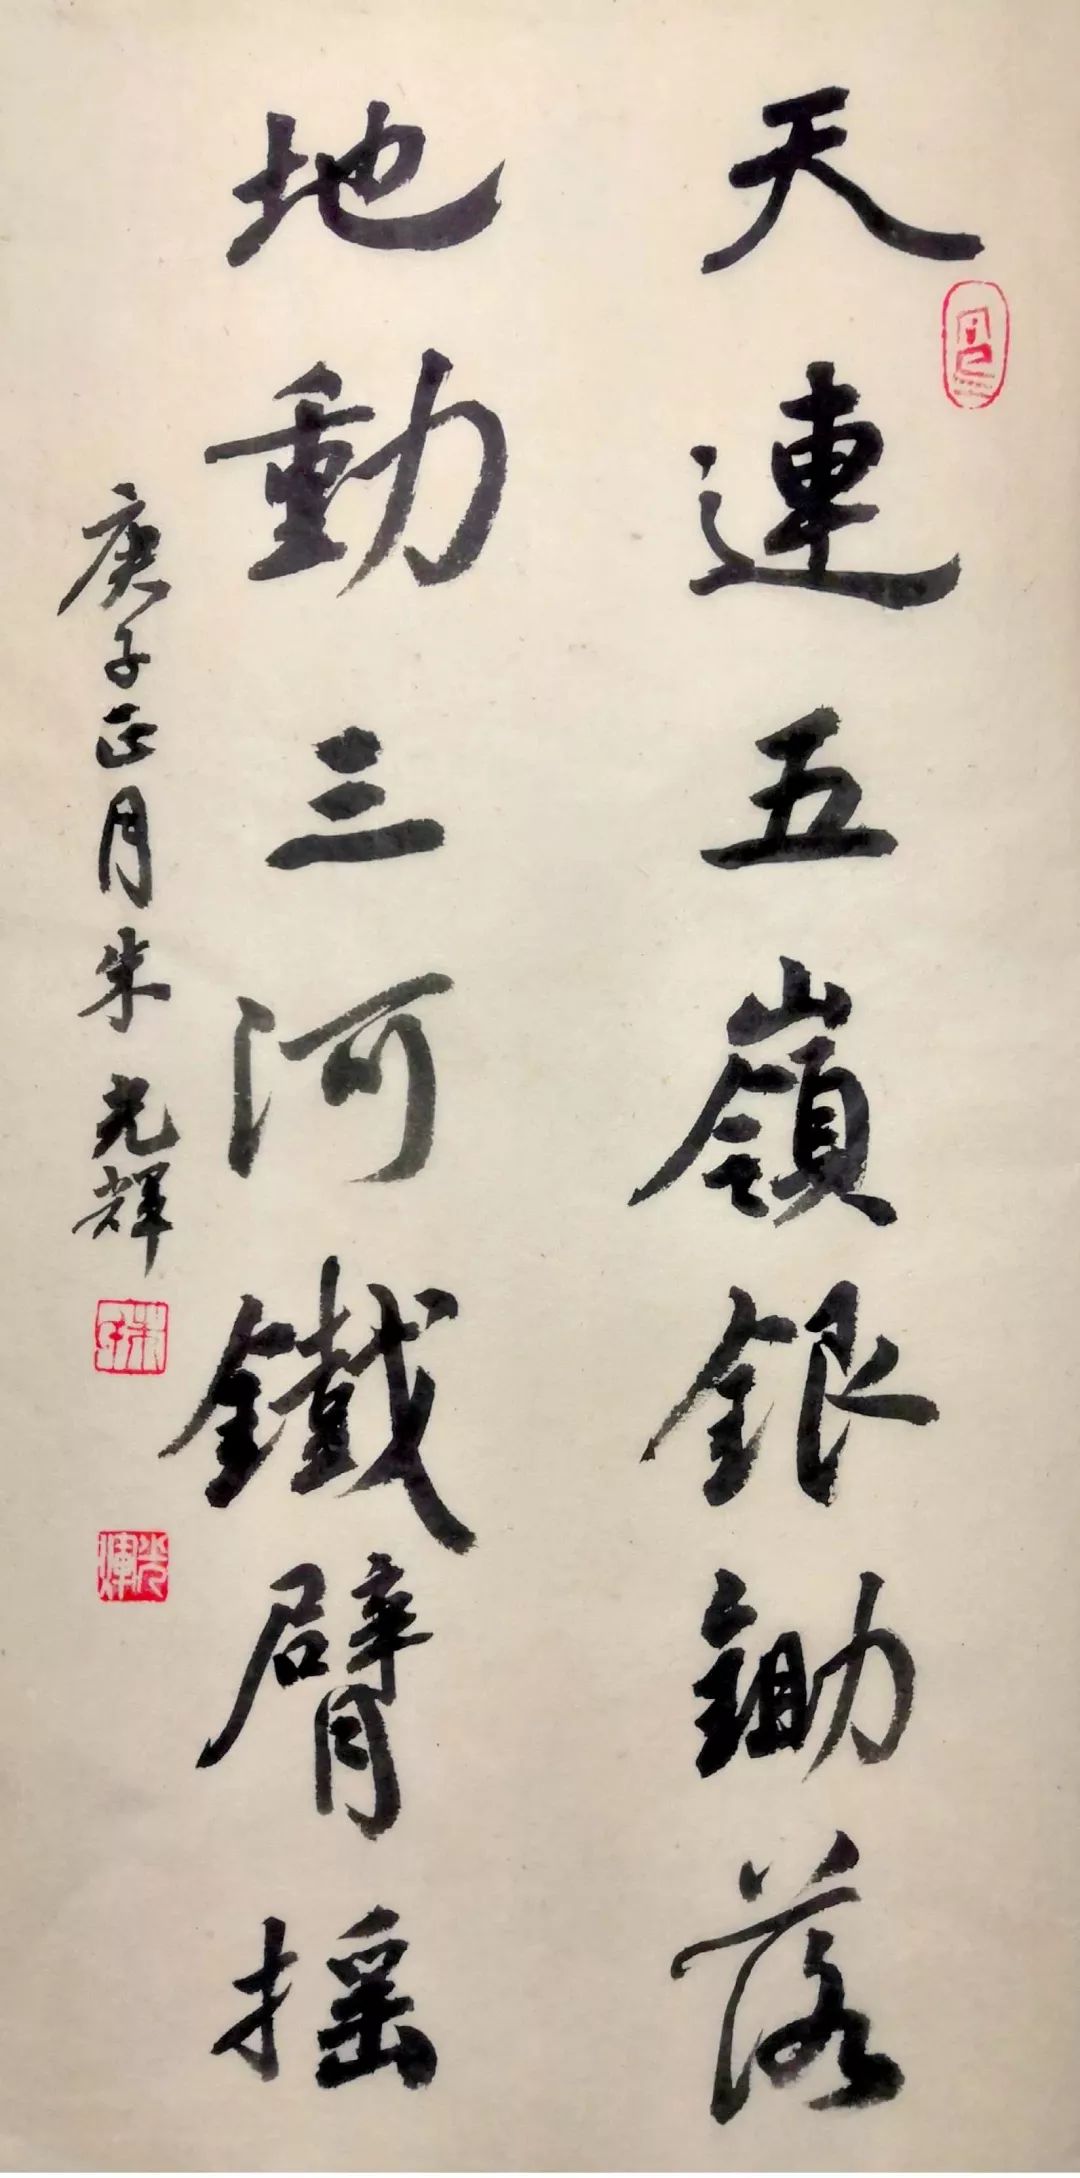 天連五嶺銀鋤落
地動三河鐵臂揺
庚子正月朱光輝
光輝